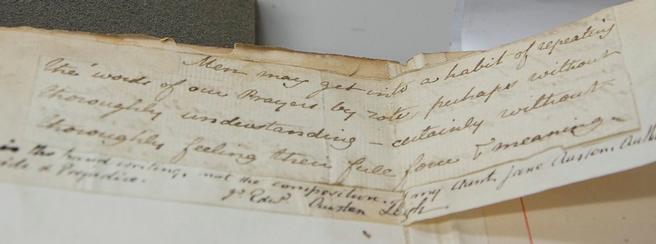 Men may get into a habit of repeating
the words of our Prayers by rote, perhaps without
thoroughly understanding – certainly without
thoroughly feeling their full force & meaning.
is the hand writing, not the composition, of my Aunt, Jane Austen, Auth
ide & Prejudice.
Edwd. Austen Leigh